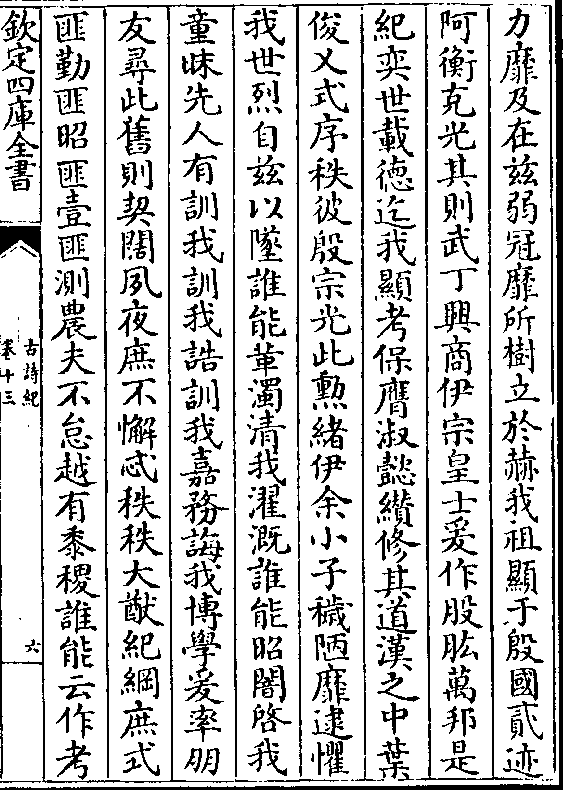 力靡及在兹弱冠靡所樹立於赫我祖顯于殷國貳迹
阿衡克光其則武丁興商伊宗皇士爰作股肱萬邦是
紀奕世載德迄我顯考保膺淑懿纉修其道漢之中葉
俊乂式序秩彼殷宗光此勲緒伊余小子穢陋靡逮懼
我世烈自兹以墜誰能革濁清我濯漑誰能昭闇啓我
童昧先人有訓我訓我誥訓我嘉務誨我博學爰率朋
友尋此舊則契闊夙夜庶不懈忒秩秩大猷紀綱庶式
匪勤匪昭匪壹匪測農夫不怠越有黍稷誰能云作考
欽定四庫全書
古詩紀
卷十三
六